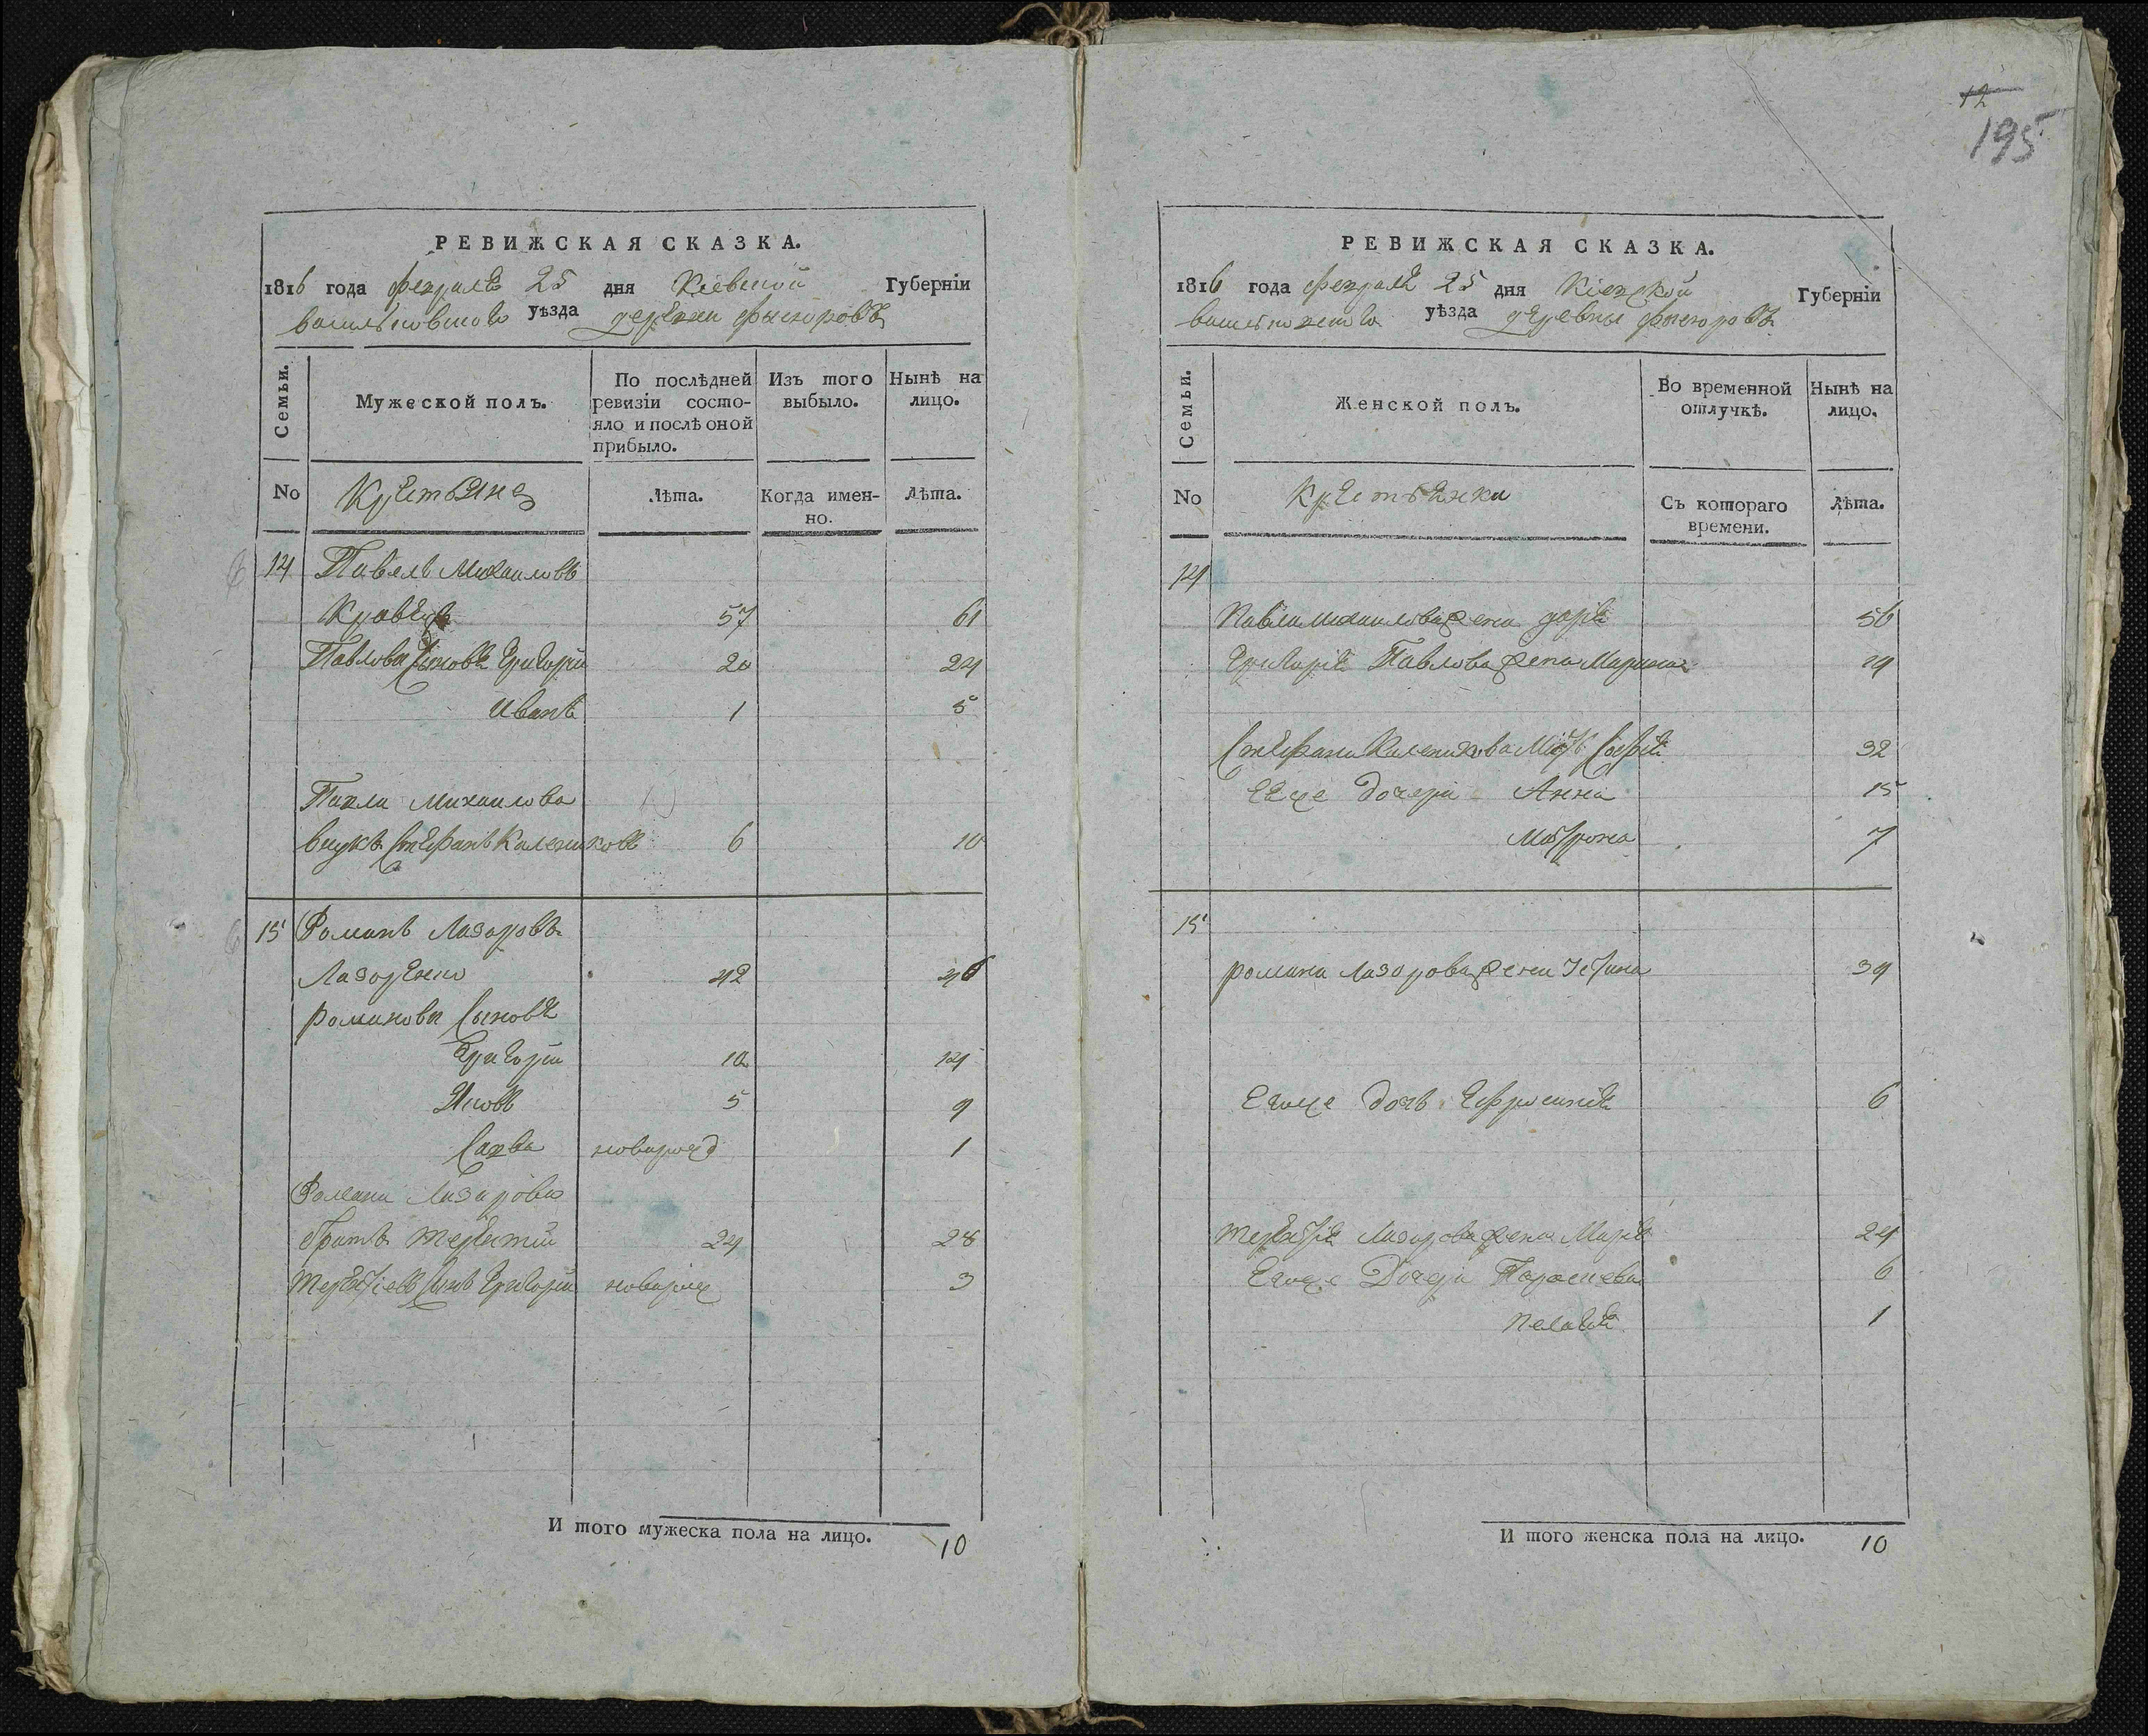 12
195
РЕВИЖСКАЯ СКАЗКА.
1816 года февраля 25 дня Кіевской Губерніи
васильковского уѣзда деревни
Семьи.
Мужеской полъ.
По послѣдней ревизіи состо-
яло и послѣ оной
прибыло.
Изъ того
выбыло.
Нынѣ на
лицо.
No
Крестьяне
Лѣта.
Когда имен-
но.
Лѣта.
14 Павелъ Михаиловъ
Кравецъ 57 61
Павловы Сыновья Григорій 20 24
Иванъ 1 5
Павла Михаилова
внукъ Стефанъ Калениковъ 6 10
15 Романъ Лазоровъ
Лазоренко 42 46
Романовы Сыновья
Григорій 10 14
Яковъ 5 9
Савва новорожд 1
Романа Лазорова
братъ терентій 24 28
терентіевъ Сынъ Григорій новорож 3
И того мужеска пола на лицо. 10
РЕВИЖСКАЯ СКАЗКА.
1816 года февраля 25 дня Кіевской Губерніи
васильковского уѣзда деревны
Семьи.
Женской полъ.
Во временной
отлучкѣ.
Нынѣ на
лицо.
No
крестьянки
Съ котораго
времени.
Лѣта.
14
Павла михаилова жена дарія 56
Григорія Павлова жена Марина 19
Стефана Каленикова Мать Софія 32
Ееже дочери Анна 15
Матрона 7
15
романа Лазорова жена 39
Егоже дочь Ефросинія 6
терентія Лазорова жена Марія 24
Егоже Дочери Параскева 6
Пелагія 1
И того женска пола на лицо. 10